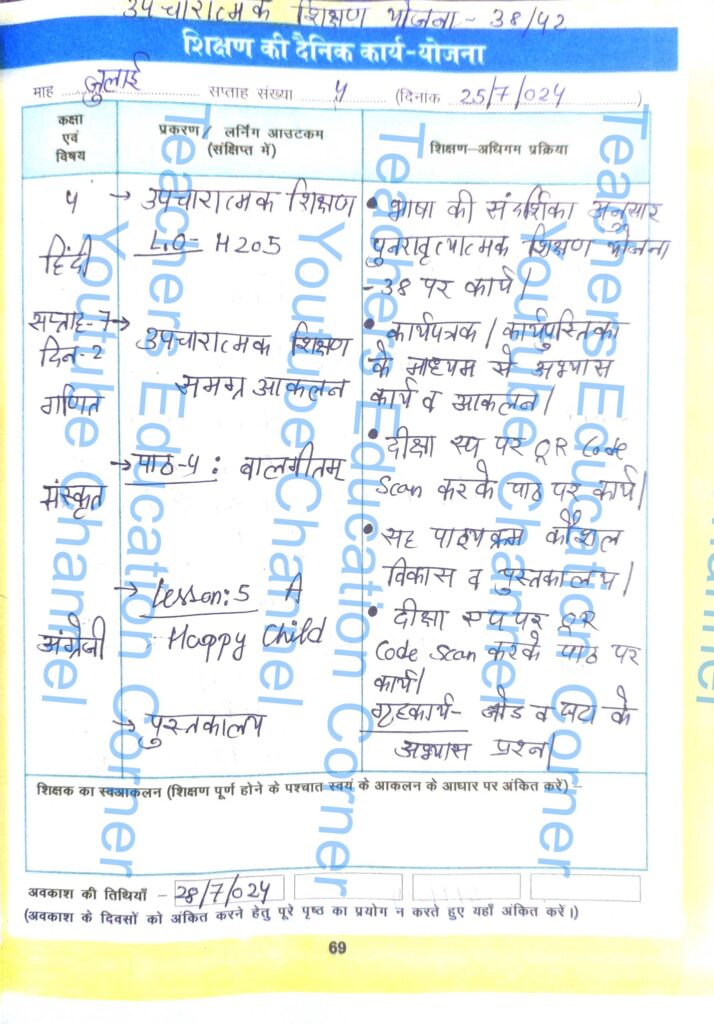 उपचारात्मक शिक्षण योजना - 38/42
शिक्षण की दैनिक कार्य-योजना
माह जुलाई सप्ताह संख्या 4 (दिनांक 25/7/024)
कक्षा एवं विषय
प्रकरण / लर्निंग आउटकम (संक्षिप्त में)
शिक्षण-अधिगम प्रक्रिया
५ → उपचारात्मक शिक्षण
हिंदी
L.O- H205
सप्ताह-7 →
दिन-2
उपचारात्मक शिक्षण
समग्र आकलन
गणित
→ पाठ-५ : बालगीतम्
संस्कृत
→ Lesson: 5 A
Happy Child
अंग्रेजी
→ पुस्तकालय
• भाषा की संदर्शिका अनुसार
पुनरावृत्यात्मक शिक्षण योजना
-38 पर कार्य|
• कार्यपत्रक / कार्यपुस्तिका
के माध्यम से अभ्यास
कार्य व आकलन|
• दीक्षा एप पर QR Code
Scan करके पाठ पर कार्य|
• सह पाठ्यक्रम कौशल
विकास व पुस्तकालय|
• दीक्षा एप पर QR
Code Scan करके पाठ पर
कार्य|
गृहकार्य- जोड व घटा के
अभ्यास प्रश्न|
शिक्षक का स्वआकलन (शिक्षण पूर्ण होने के पश्चात स्वयं के आकलन के आधार पर अंकित करें) –
अवकाश की तिथियाँ – 28/7/024
(अवकाश के दिवसों को अंकित करने हेतु पूरे पृष्ठ का प्रयोग न करते हुए यहाँ अंकित करें।)
69
Teachers Education Corner
Youtube Channel
Teachers Education Corner
Youtube Channel
Teachers Education Corner
Youtube Channel